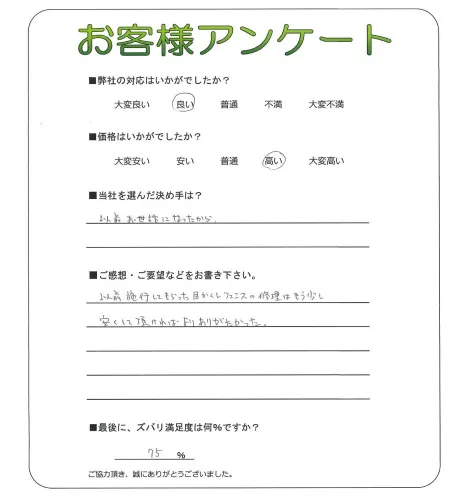 お客様アンケート
■弊社の対応はいかがでしたか？
大変良い 良い 普通 不満 大変不満
■価格はいかがでしたか？
大変安い 安い 普通 高い 大変高い
■当社を選んだ決め手は？
以前お世話になったから、
■ご感想・ご要望などをお書き下さい。
以前施行してもらった目かくしフェンスの修理はもう少し
安くして頂ければよりありがたかった。
■最後に、ズバリ満足度は何％ですか？
75 %
ご協力頂き、誠にありがとうございました。